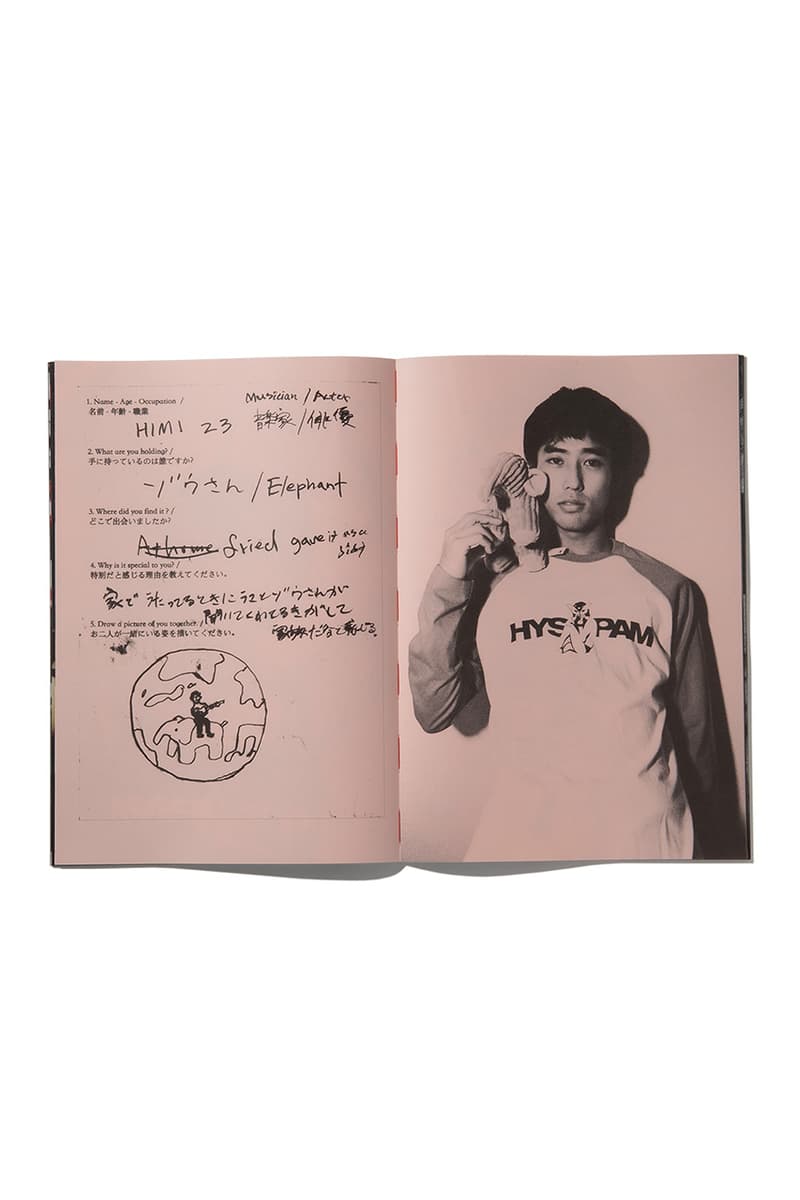 1. Name - Age - Occupation /
名前 - 年齢 - 職業
Musician / Actor
HIMI 23 音楽家 / 俳優
2. What are you holding? /
手に持っているのは誰ですか?
ゾウさん / Elephant
3. Where did you find it ? /
どこで出会いましたか?
At home fried gave it as a
4. Why is it special to you? /
特別だと感じる理由を教えてください。
家で歌ってるときにうことゾウさんが
聞いてくれてるきがして
5. Draw a picture of you together. /
お二人が一緒にいる姿を描いてください。
HYS PAM